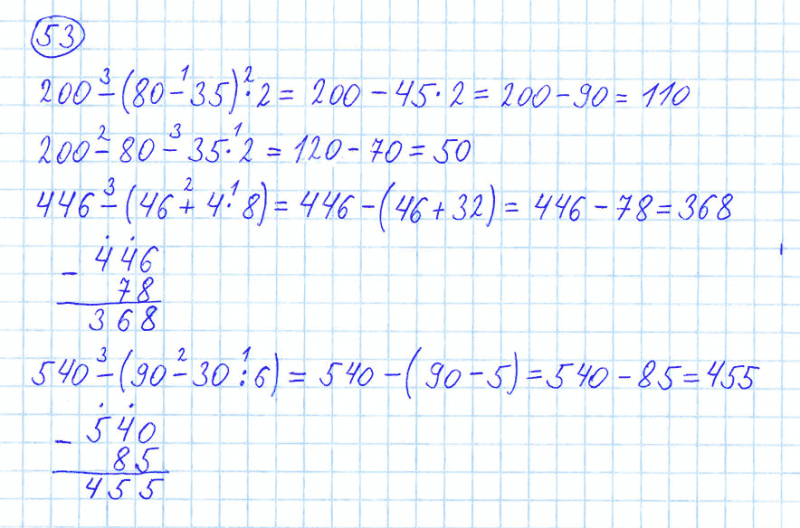 53
200 - (80 - 35) · 2 = 200 - 45 · 2 = 200 - 90 = 110
200 - 80 - 35 · 2 = 120 - 70 = 50
446 - (46 + 4 · 8) = 446 - (46 + 32) = 446 - 78 = 368
- 446
78
368
540 - (90 - 30 : 6) = 540 - (90 - 5) = 540 - 85 = 455
- 540
85
455